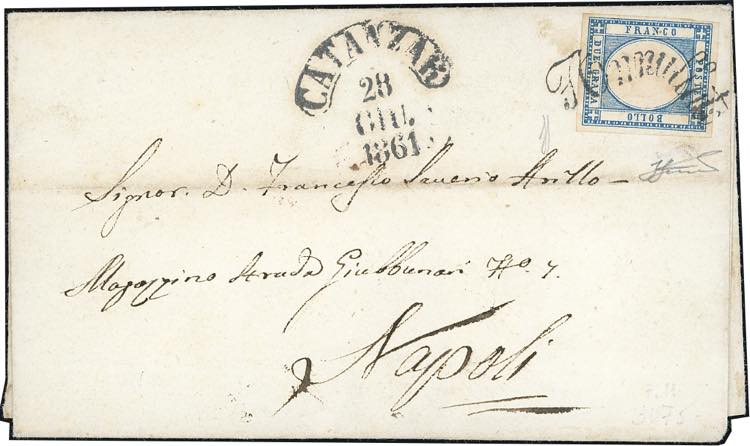 CATANZAR
28
GIU.
1861
FRANCO
DUE GRANA
POSTALE
BOLLO
Signor. D. Francesco Saverio Arillo
Magazzino Strada Giubbonari No. 7.
Napoli